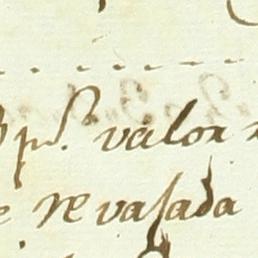 ps. valor
revasada